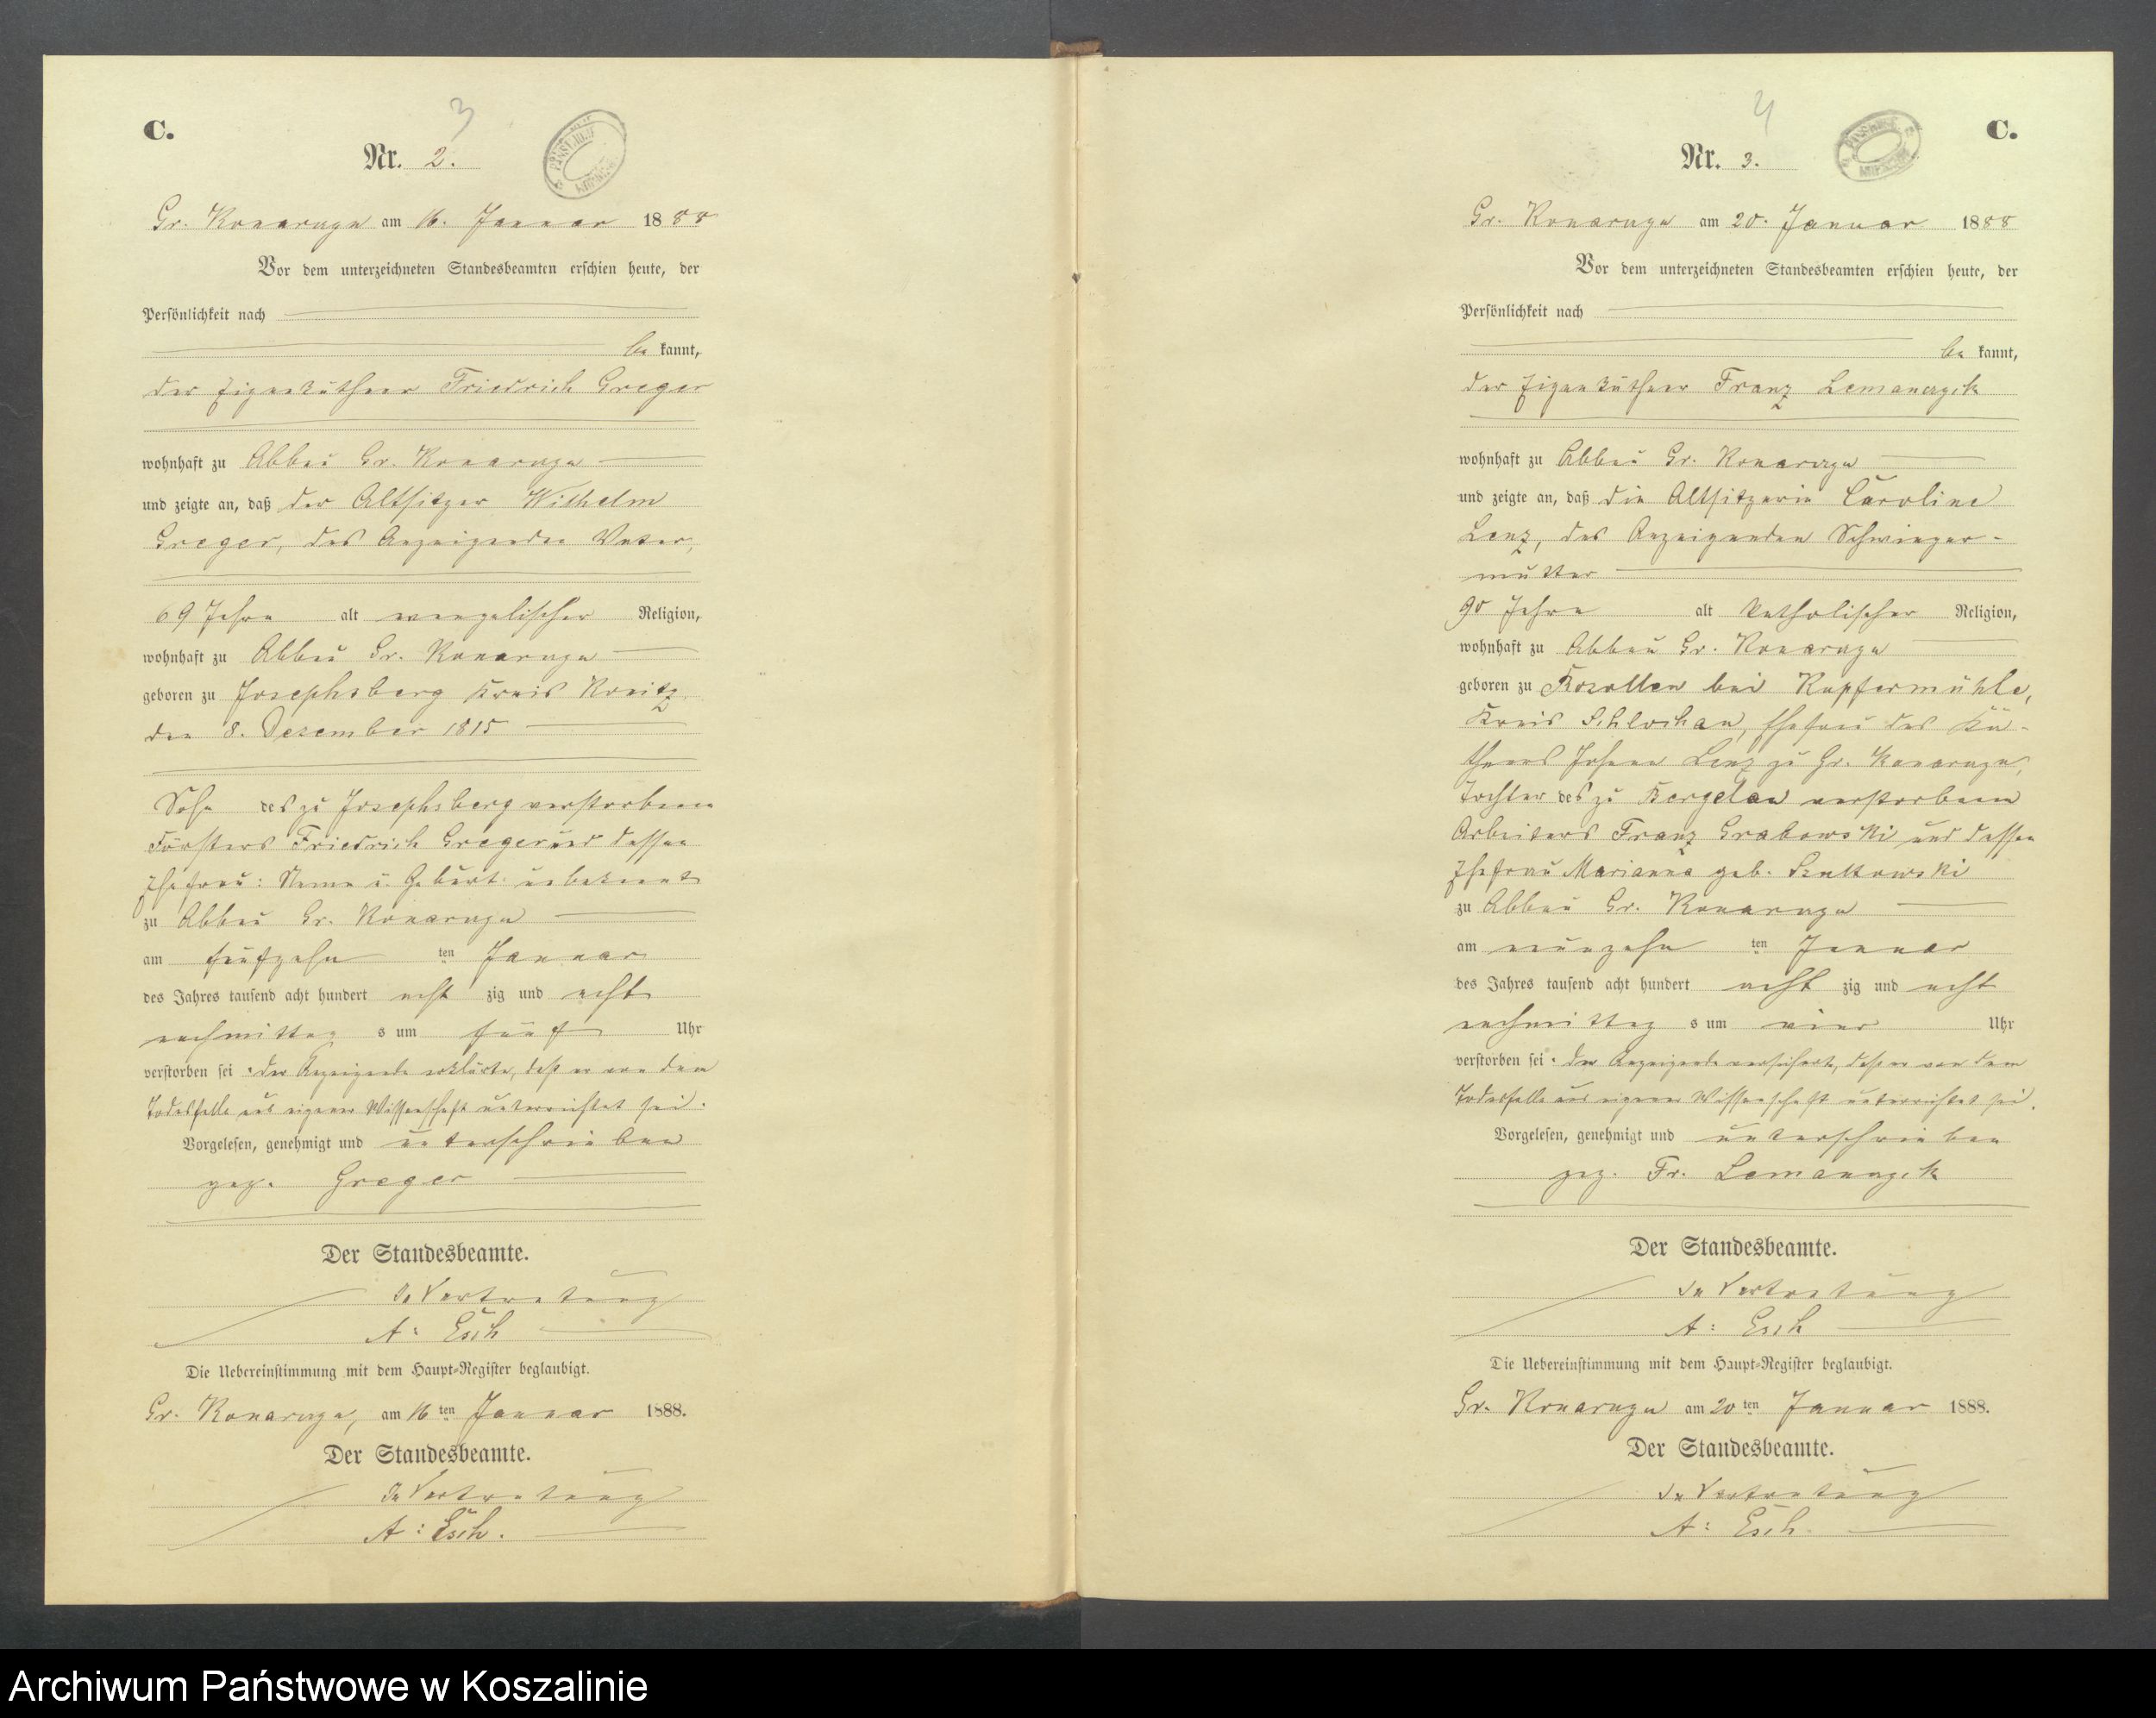 C.
3
Nr. 2.
Gr. Konarczyn am 16. Januar 1888
Vor dem unterzeichneten Standesbeamten erschien heute, der
Persönlichkeit nach
be kannt,
der Eigenkäthner Friedrich Greger
wohnhaft zu Abbau Gr. Konarczyn
und zeigte an, daß der Altsitzer Wilhelm
Greger, des Anzeigenden Vater,
69 Jahre alt evangelischer Religion,
wohnhaft zu Abbau Gr. Konarczyn
geboren zu Josephsberg Kreis Konitz
den 8. Dezember 1815
Sohn des zu Josephsberg verstorbenen
Försters Friedrich Greger und dessen
Ehefrau: Name u. Geburt unbekannt
zu Abbau Gr. Konarczyn
am fünfzehn ten Januar
des Jahres tausend acht hundert acht zig und acht
nachmittag s um fünf Uhr
verstorben sei. der Anzeigende erklärte, daß er von dem
Todesfalle aus eigener Wissenschaft unterrichtet sei.
Vorgelesen, genehmigt und unterschrieben
gez. Greger
Der Standesbeamte.
In Vertretung
A: Esch
Die Uebereinstimmung mit dem Haupt-Register beglaubigt.
Gr. Konarczyn, am 16 ten Januar 1888.
Der Standesbeamte.
In Vertretung
A: Esch.
4
C.
Nr. 3.
Gr. Konarczyn am 20. Januar 1888
Vor dem unterzeichneten Standesbeamten erschien heute, der
Persönlichkeit nach
be kannt,
der Eigenkäthner Franz Lemanczyk
wohnhaft zu Abbau Gr. Konarczyn
und zeigte an, daß die Altsitzerin Caroline
Lenz, des Anzeigenden Schwieger-
mutter
90 Jahre alt katholischer Religion,
wohnhaft zu Abbau Gr. Konarczyn
geboren zu bei Kupfermühle,
Kreis Schlochau, Ehefrau des Kä-
thners Johann Lenz zu Gr. Konarczyn,
Tochter des zu Bergelau verstorbenen
Arbeiters Franz Grabowski und dessen
Ehefrau Marianna geb.
zu Abbau Gr. Konarczyn
am neunzehn ten Januar
des Jahres tausend acht hundert acht zig und acht
nachmittag s um vier Uhr
verstorben sei. der Anzeigende versichert, daß er von dem
Todesfalle aus eigener Wissenschaft unterrichtet sei.
Vorgelesen, genehmigt und unterschrieben
gez. Fr. Lemanczyk
Der Standesbeamte.
In Vertretung
A: Esch
Die Uebereinstimmung mit dem Haupt-Register beglaubigt.
Gr. Konarczyn am 20 ten Januar 1888.
Der Standesbeamte.
In Vertretung
A: Esch.
Archiwum Państwowe w Koszalinie